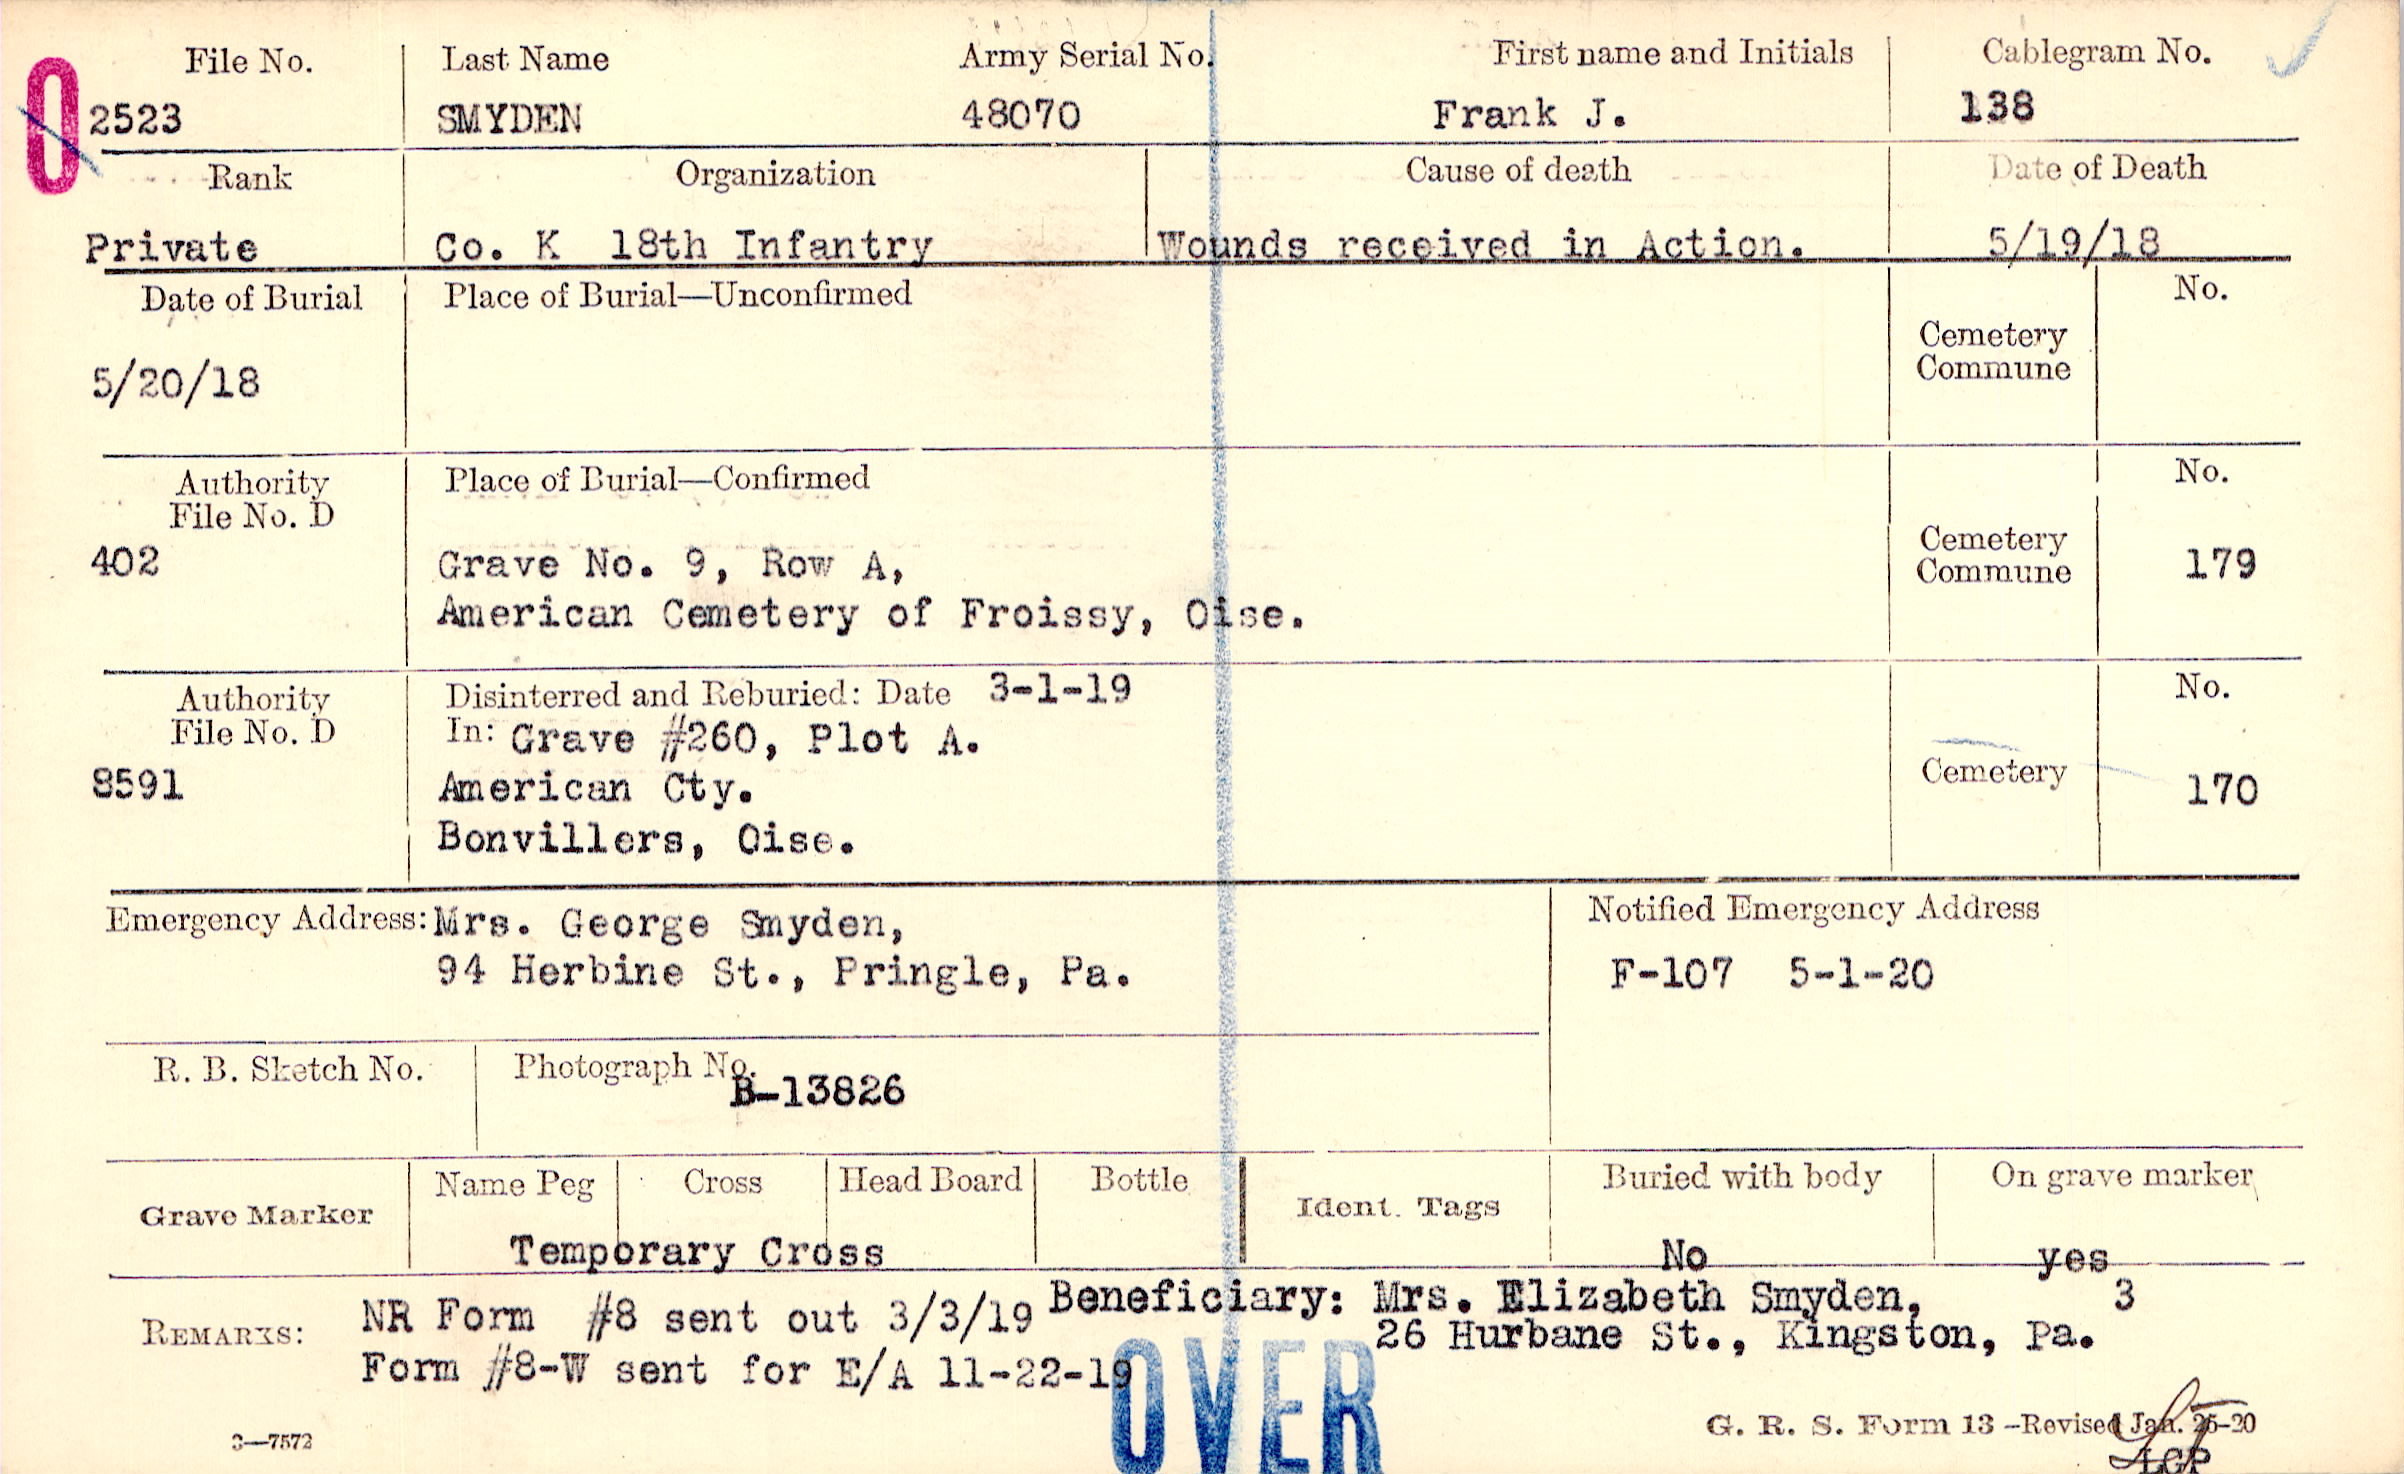 File No. Last Name Army Serial No. First name and Initials Cablegram No.
0 2523 SMYDEN 48070 Frank J. 138
Rank Organization Cause of death Date of Death
Private Co. K 18th Infantry Wounds received in Action. 5/19/18
Date of Burial Place of Burial—Unconfirmed No.
Cemetery
Commune
5/20/18
Authority Place of Burial—Confirmed No.
File No. D
Cemetery
402 Grave No. 9, Row A, Commune 179
American Cemetery of Froissy, Oise.
Authority Disinterred and Reburied: Date 3-1-19 No.
File No. D In: Grave #260, Plot A.
8591 American Cty. Cemetery 170
Bonvillers, Oise.
Emergency Address: Mrs. George Smyden, Notified Emergency Address
94 Herbine St., Pringle, Pa. F-107 5-1-20
R. B. Sketch No. Photograph No.
B-13826
Name Peg Cross Head Board Bottle Buried with body On grave marker
Grave Marker Ident. Tags
Temporary Cross No yes
REMARKS: NR Form #8 sent out 3/3/19 Beneficiary: Mrs. Elizabeth Smyden, 3
26 Hurbane St., Kingston, Pa.
Form #8-W sent for E/A 11-22-19
OVER
3—7572 G. R. S. Form 13 -Revised Jan. 26-20